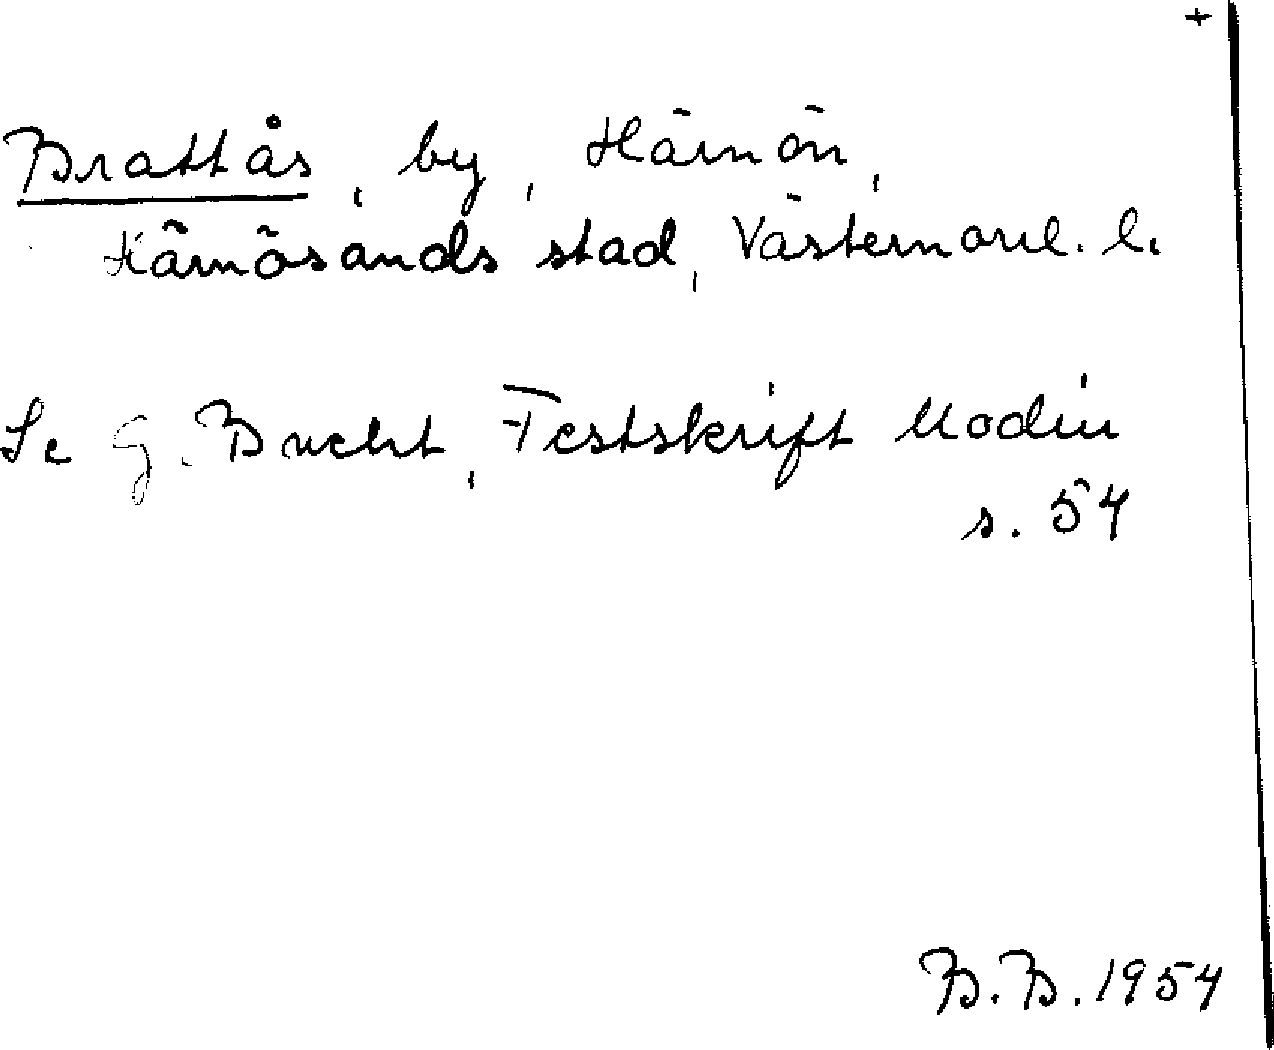 +
Brattås, by, Härnön,
Härnösands stad, Västernorrl. l.
Se G. Bucht, Festskrift Modin
s. 54
B.B. 1954